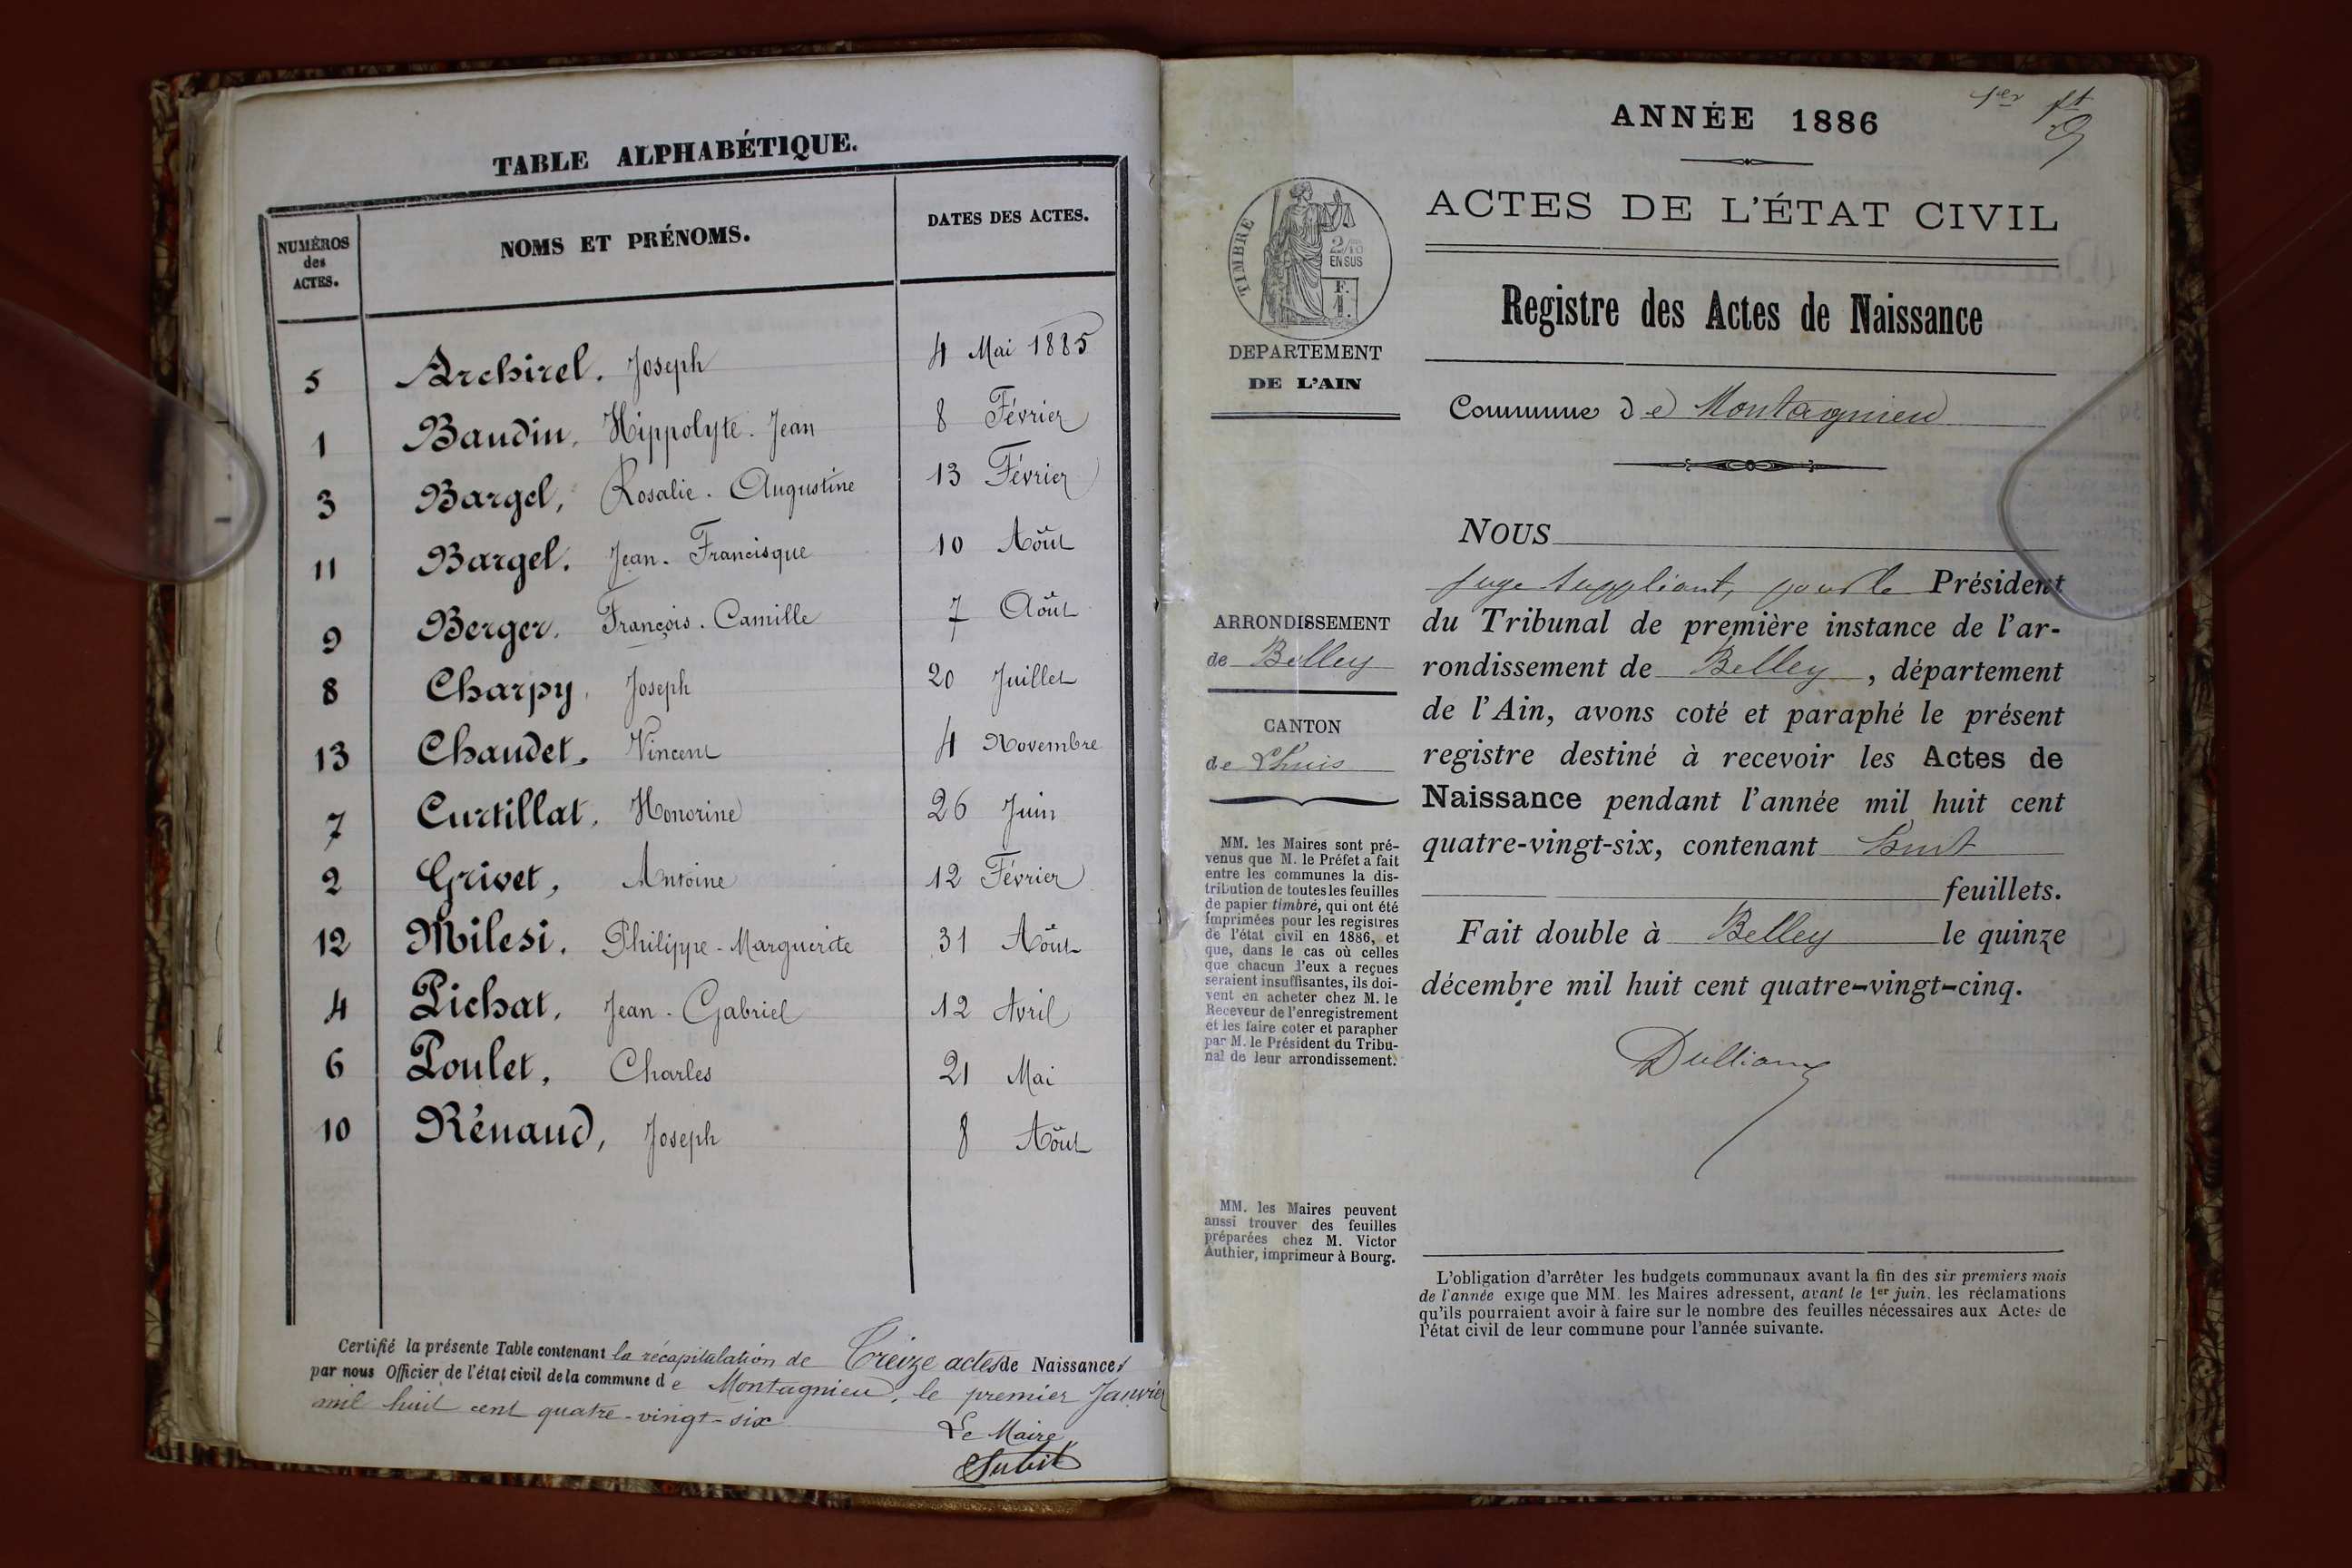 TABLE ALPHABÉTIQUE.
NUMÉROS
des
ACTES.
NOMS ET PRÉNOMS.
DATES DES ACTES.
5 Archirel. Joseph 4 Mai 1885
1 Baudin, Hippolyte. Jean 8 Février
3 Bargel, Rosalie. Augustine 13 Février
11 Bargel. Jean. Francisque 10 Aôut
9 Berger. François. Camille 7 Aôut
8 Charpy, Joseph 20 Juillet
13 Chaudet, Vincent 4 Novembre
7 Curtillat, Honorine 26 Juin
2 Grivet, Antoine 12 Février
12 Milesi. Philippe-Marguerite 31 Aôut
4 Pichat, Jean. Gabriel 12 Avril
6 Poulet, Charles 21 Mai
10 Rénaud, Joseph 8 Aôut
Certifié la présente Table contenant la récapitulation de Treize actes de Naissances
par nous Officier de l'état civil de la commune de Montagnieu, le premier Janvier
mil huit cent quatre-vingt-six
Le Maire
1er ft
ANNÉE 1886
ACTES DE L'ÉTAT CIVIL
TIMBRE
2/10
EN SUS
F.
1.
Registre des Actes de Naissance
DEPARTEMENT
DE L'AIN
Commune de Montagnieu
NOUS
juge suppléant, pour le Président
du Tribunal de première instance de l'ar-
rondissement de Belley, département
de l'Ain, avons coté et paraphé le présent
registre destiné à recevoir les Actes de
Naissance pendant l'année mil huit cent
quatre-vingt-six, contenant huit
feuillets.
Fait double à Belley le quinze
décembre mil huit cent quatre-vingt-cinq.
ARRONDISSEMENT
de Belley
CANTON
de Lhuis
MM. les Maires sont pré-
venus que M. le Préfet a fait
entre les communes la dis-
tribution de toutes les feuilles
de papier timbré, qui ont été
imprimées pour les registres
de l'état civil en 1886, et
que, dans le cas où celles
que chacun d'eux a reçues
seraient insuffisantes, ils doi-
vent en acheter chez M. le
Receveur de l'enregistrement
et les faire coter et parapher
par M. le Président du Tribu-
nal de leur arrondissement.
MM. les Maires peuvent
aussi trouver des feuilles
préparées chez M. Victor
Authier, imprimeur à Bourg.
L'obligation d'arrêter les budgets communaux avant la fin des six premiers mois
de l'année exige que MM. les Maires adressent, avant le 1er juin, les réclamations
qu'ils pourraient avoir à faire sur le nombre des feuilles nécessaires aux Actes de
l'état civil de leur commune pour l'année suivante.